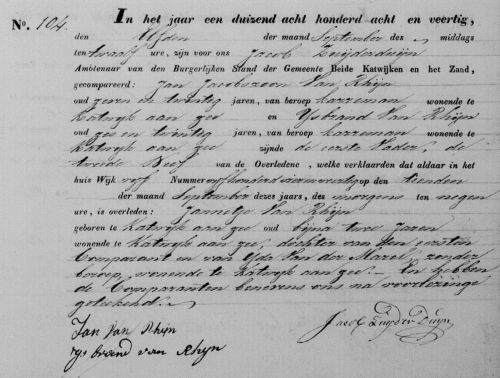 No. 104. In het jaar een duizend acht honderd acht en veertig,
den Elfden der maand September des middags
ten twaalf ure, zijn voor ons Jacob Zuijderduijn
Ambtenaar van den Burgerlijken Stand der Gemeente Beide Katwijken en het Zand,
gecompareerd: Jan Jacobszoon Van Rhijn
oud zeven en twintig jaren, van beroep karreman wonende te
Katwijk aan zee en IJsbrand Van Rhijn
oud zes en twintig jaren, van beroep karreman wonende te
Katwijk aan zee zijnde de eerste Vader, de
tweede van de Overledene, welke verklaarden dat aldaar in het
huis Wijk Nummer op den tienden
der maand September dezes jaars, des morgens ten negen
ure, is overleden: Jannetje Van Rhijn
geboren te Katwijk aan zee oud bijna twee Jaren
wonende te Katwijk aan zee, dochter van den eersten
Comparant en van Van der Marel, zonder
beroep, wonende te Katwijk aan zee. En hebben
de Comparanten benevens ons na voorlezing
geteekend.
Jan van Rhijn Jacob Zuyderduyn
ijsbrand van Rhijn